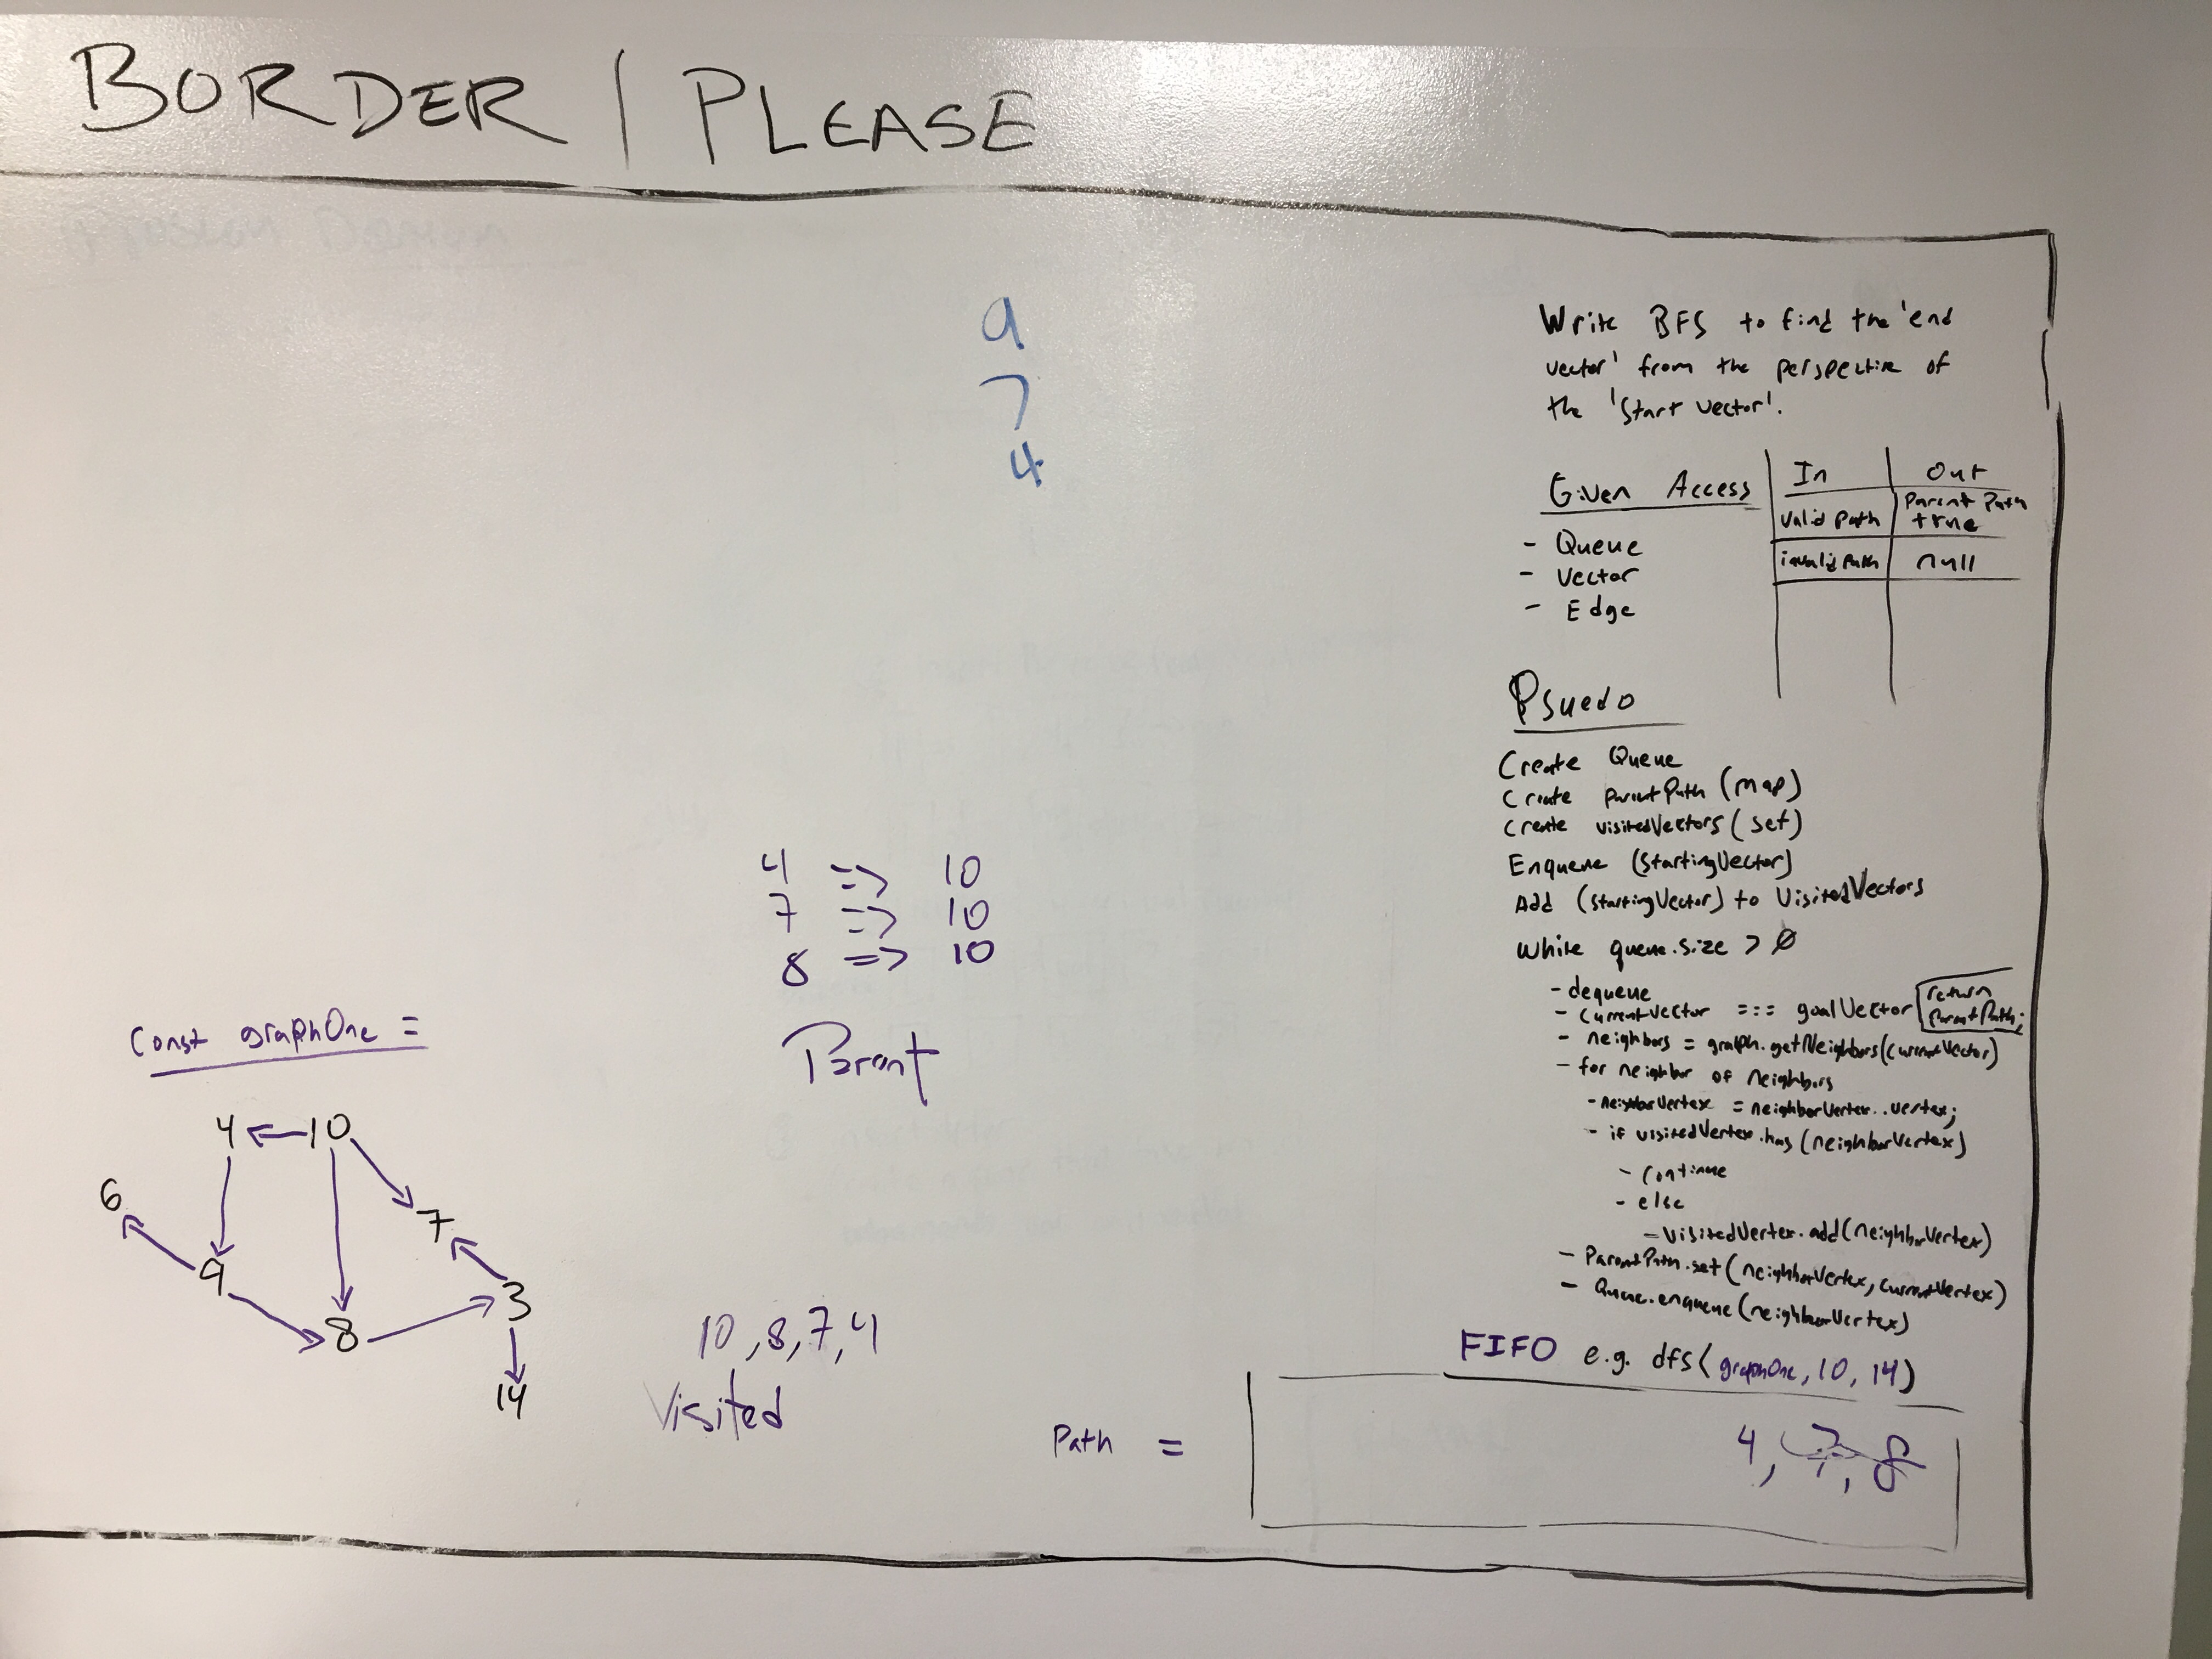 BORDER | PLEASE
9
7
4
Write BFS to find the 'end
vector' from the perspective of
the 'Start vector'.
Given Access
- Queue
- Vector
- Edge
In Out
Valid Path Parent Path
true
invalid Path null
Psuedo
Create Queue
Create parentPath (map)
Create visitedVectors (set)
Enqueue (StartingVector)
Add (StartingVector) to VisitedVectors
While queue.size > Ø
- dequeue
- CurrentVector === goalVector return
ParentPath;
- neighbors = graph.getNeighbors(currentVector)
- for neighbor of neighbors
- neighborVertex = neighborVertex..vertex;
- if visitedVertex.has (neighborVertex)
- Continue
- else
- visitedVertex.add(neighborVertex)
- ParentPath.set(neighborVertex, currentVertex)
- Queue.enqueue(neighborVertex)
FIFO e.g. dfs(graphOne, 10, 14)
4 => 10
7 => 10
8 => 10
Parent
Const graphOne =
4 10
6 7
9
8 3
14
10, 8, 7, 4
Visited
Path = 4, 7, 8